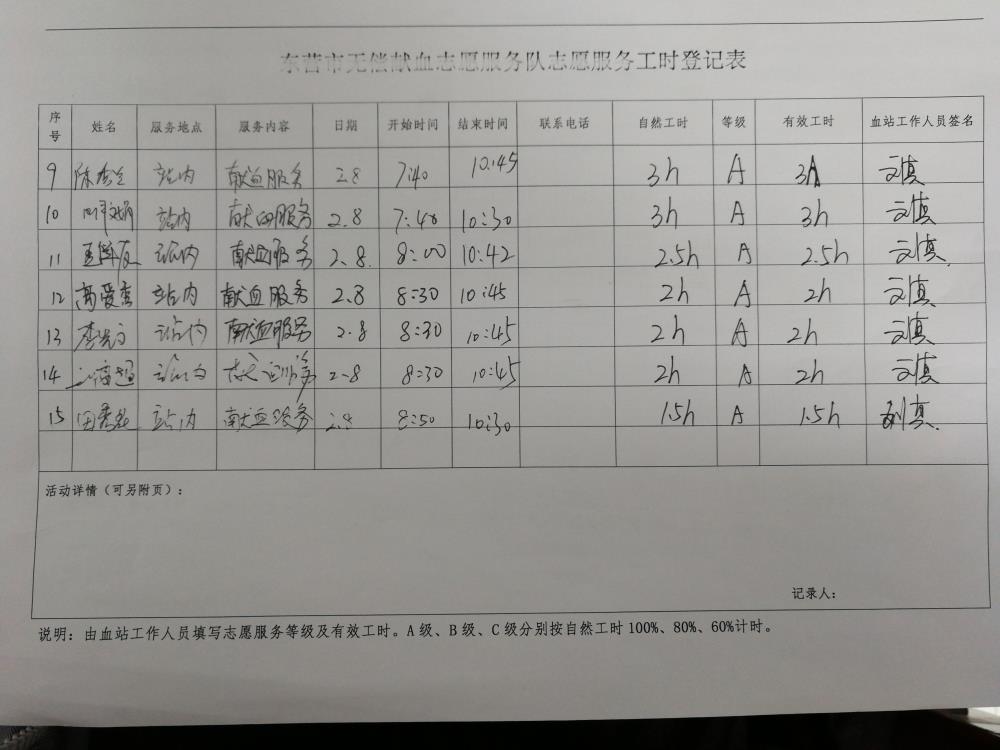 东营市无偿献血志愿服务队志愿服务工时登记表
序号 姓名 服务地点 服务内容 日期 开始时间 结束时间 联系电话 自然工时 等级 有效工时 血站工作人员签名
9 站内 献血服务 2.8 7:40 10:45 3h A 3h
10 站内 献血服务 2.8 7:40 10:30 3h A 3h
11 站内 献血服务 2.8 8:00 10:42 2.5h A 2.5h
12 高爱 站内 献血服务 2.8 8:30 10:45 2h A 2h
13 李 站内 献血服务 2.8 8:30 10:45 2h A 2h
14 站内 2.8 8:30 10:45 2h A 2h
15 田秀 站内 献血服务 2.8 8:50 10:30 1.5h A 1.5h
活动详情（可另附页）：
记录人：
说明：由血站工作人员填写志愿服务等级及有效工时。A级、B级、C级分别按自然工时100%、80%、60%计时。